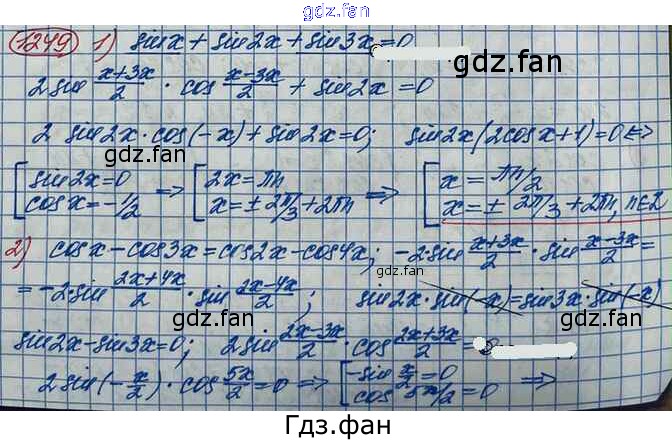 gdz.fan
1249 1) sinx + sin2x + sin3x = 0
gdz.fan gdz.fan
2 sin (x+3x)/2 · cos (x-3x)/2 + sin2x = 0
2 sin2x · cos(-x) + sin2x = 0; sin2x(2cosx+1) = 0 <=>
gdz.fan gdz.fan
[ sin2x = 0 => [ 2x = πn => [ x = πn/2
cosx = -1/2 x = ± 2π/3 + 2πn x = ± 2π/3 + 2πn, n∈Z
2) cosx - cos3x = cos2x - cos4x; -2·sin (x+3x)/2 · sin (x-3x)/2 =
gdz.fan gdz.fan
= -2·sin (2x+4x)/2 · sin (2x-4x)/2 ; sin2x·sin(-x) = sin3x·sin(-x)
gdz.fan gdz.fan
sin2x - sin3x = 0; 2sin (2x-3x)/2 · cos (2x+3x)/2 =
2 sin(-x/2) · cos 5x/2 = 0 => [ -sin x/2 = 0 =>
cos 5x/2 = 0
gdz.fan gdz.fan
Гдз.фан